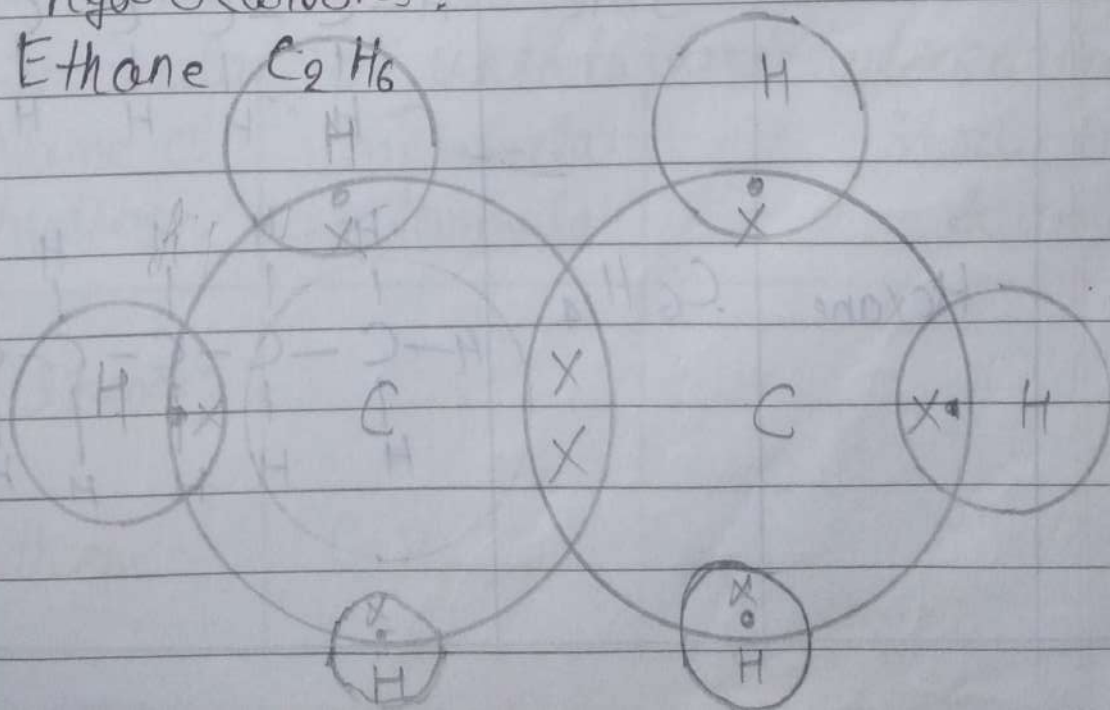 Ethane C2 H6
H H
X X
H X C X X C X H
X X
H H